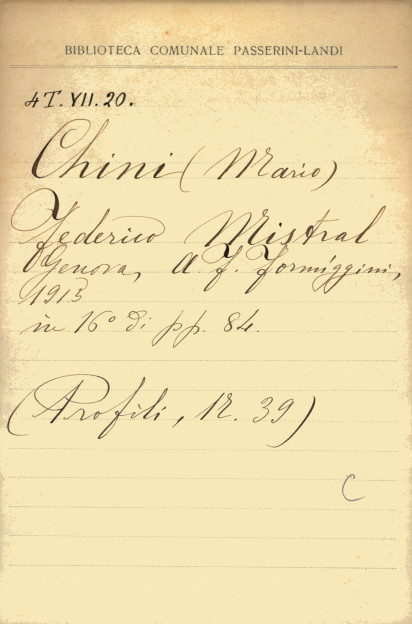 BIBLIOTECA COMUNALE PASSERINI-LANDI
4T. VII. 20.
Chini (Mario)
Federico Mistral
Genova, A. F. Formiggini,
1913
in 16° di pp. 84.
(Profili, n. 39)
C